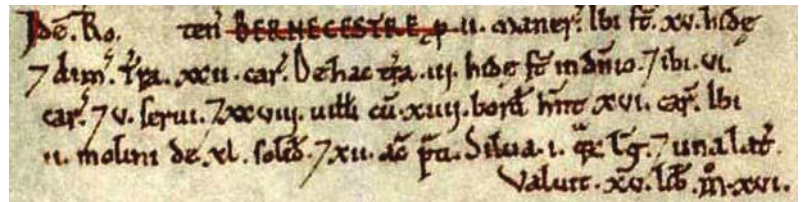 Idē. Ro. ten̄ BERNECESTRE p .ii. maner̄. Ibi sт̄. xv. hidę
⁊ dim̄. Tr̄a. xxii. car̄. De hac tr̄a .iii. hidę sт̄ in dn̄io. ⁊ ibi. vi.
car̄. ⁊ v. serui. ⁊ xxviii. uiłłi cū. xiiii. bord̄ hn̄t xvi. car̄. Ibi
ii. molini de. xl. solid̄. ⁊ xii. ac̄ p̄ti. Silua .i. qr̄ lḡ. ⁊ una lat̄.
Valuit. xv. lib̄. m̊. xvi.